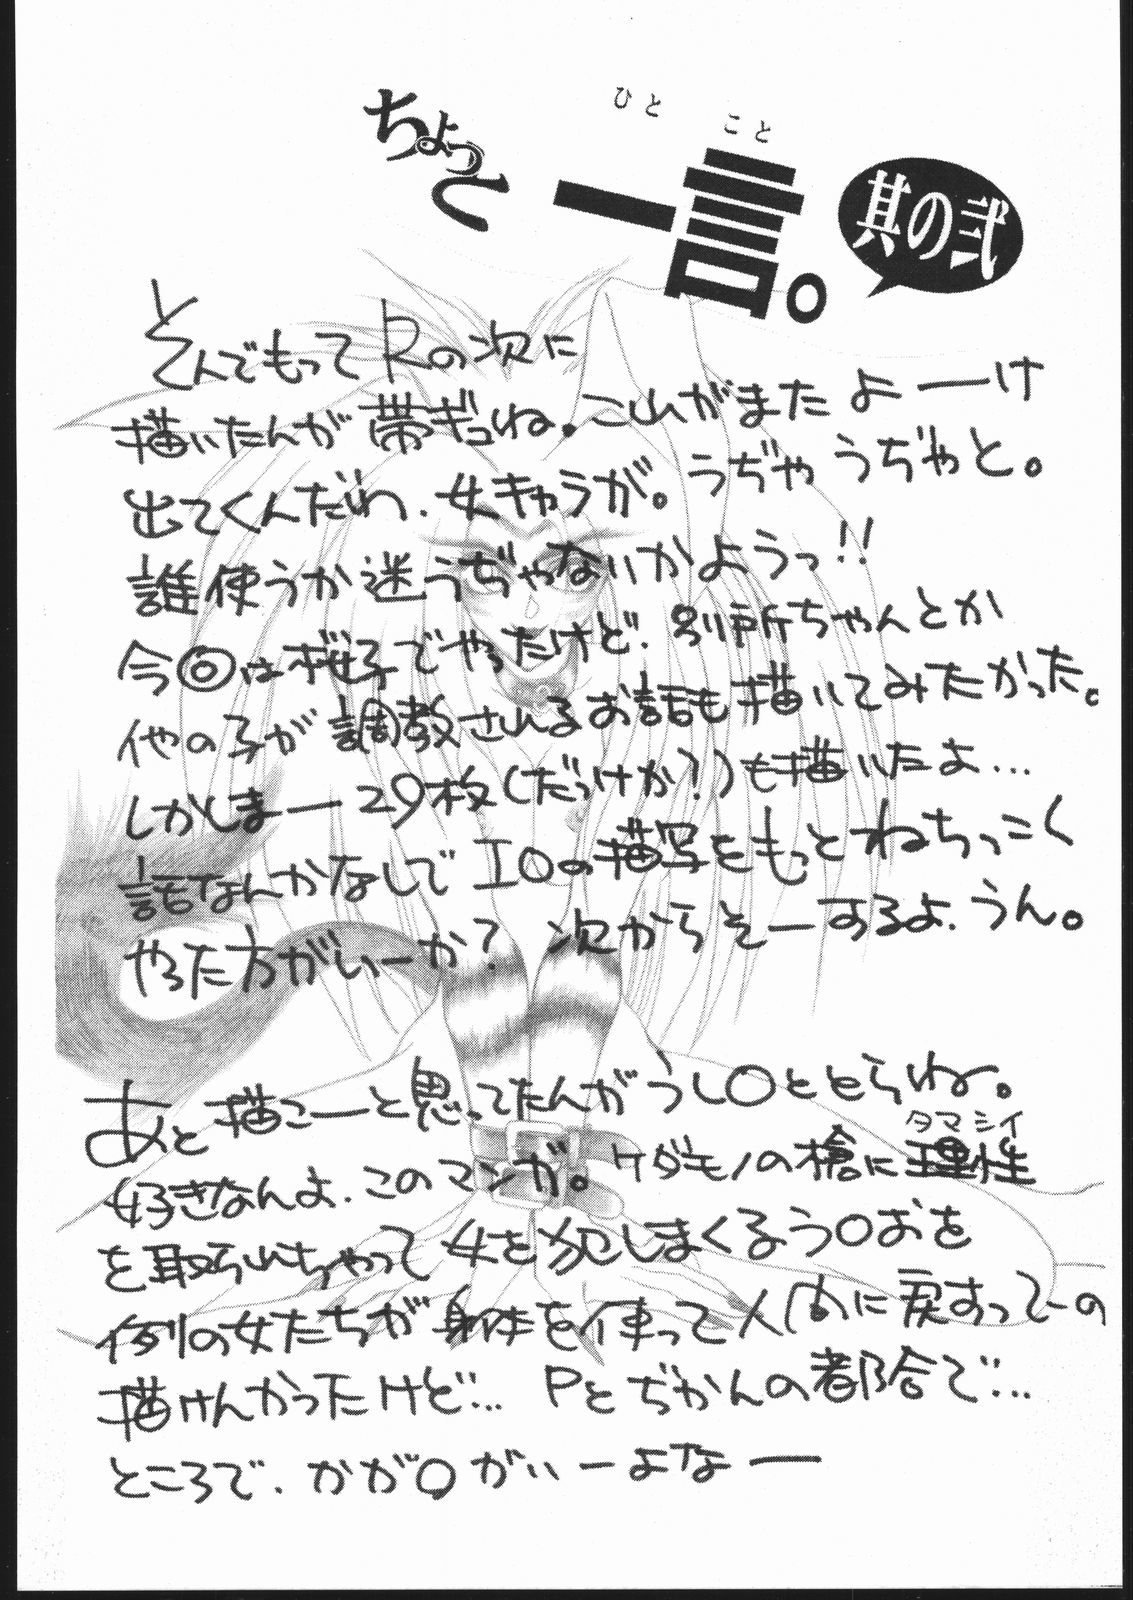 ひとこと
ちょっと一言。
其の弐
そんでもってRの次に
描いたんが帯ギュね。こいがまたよーけ
出てくんだわ、女キャラが。うぢゃうぢゃと。
誰使うか迷うぢゃないかようっ!!
今回は桜子でやったけど、別所ちゃんとか
他の子が調教されるお話も描いてみたかった。
しかしまー29枚(だっけか?)も描いたよ…
話なんかなしでIOの描写をもっとねちっこく
やった方がいーか? 次からそーするよ、うん。
あと描こーと思ってたんがうし〇ととらね。
好きなんよ、このマンガ。ケダモノの槍に理性
タマシイ
を取られちゃって女を犯しまくるう〇おを
例の女たちが身体を使って人間に戻すってーの
描けんかったけど… Pとぢかんの都合で…
ところで、かが〇がいーよなー